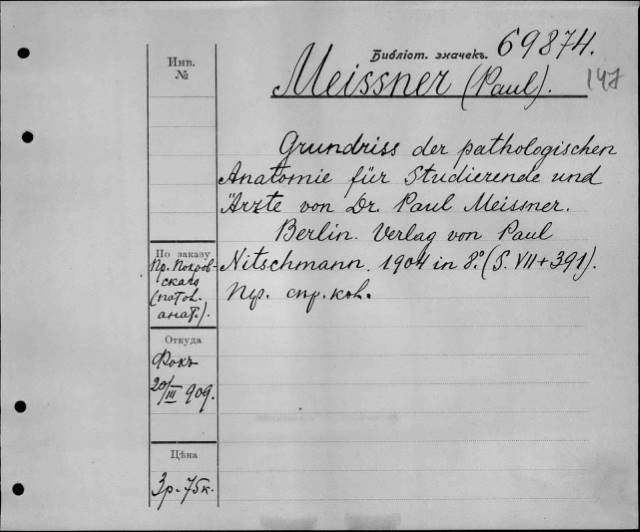 Библіот. значекъ. 69874.
Инв. №
Meissner (Paul). 147
Grundriss der pathologischen
Anatomie für Studierende und
Ärzte von Dr. Paul Meissner.
Berlin. Verlag von Paul
Nitschmann. 1904 in 8º. (S. VII+391).
По заказу
Пр. Покров-
скаго
(патол.
анат.).
Откуда
Фокъ
20/III 909.
Цѣна
3р.-75к.